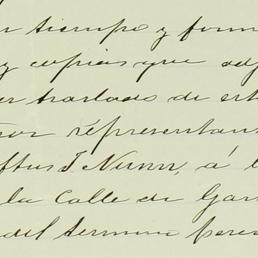 tiempo y form
y copias que adj
er traslado de est
representan
ftus J. Nunn, á l
la Calle de Gar
del termino pere